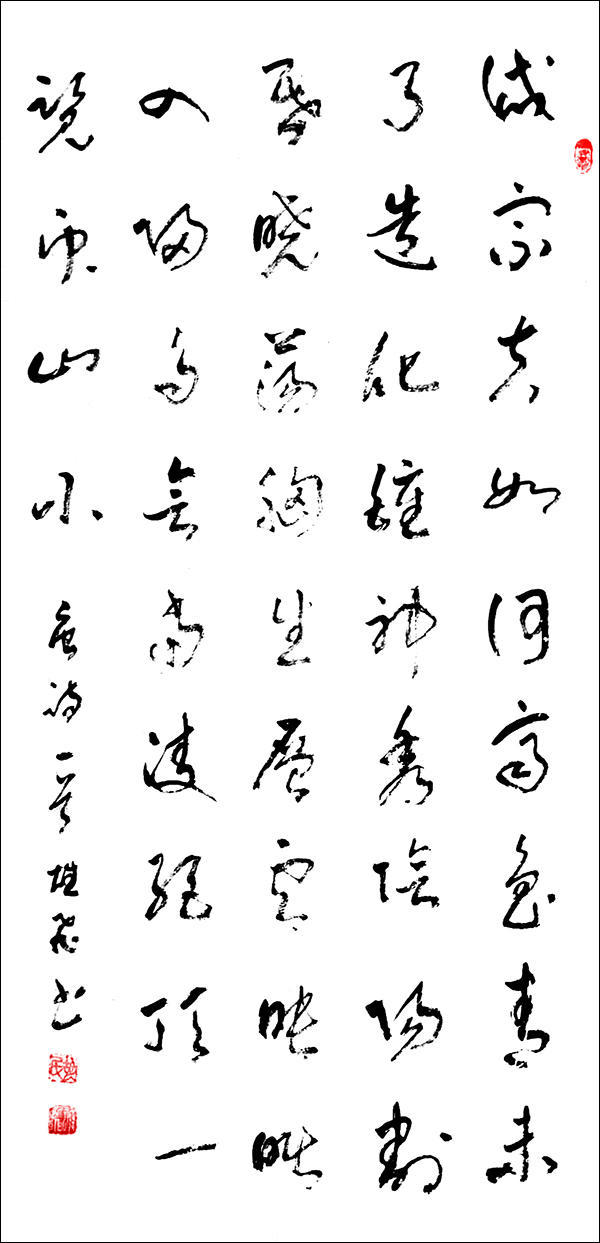 岱宗夫如何齊魯青未
了造化鍾神秀陰陽割
昏曉蕩胸生層雲決眦
入歸鳥會當凌絕頂一
覽眾山小
唐詩一首 書